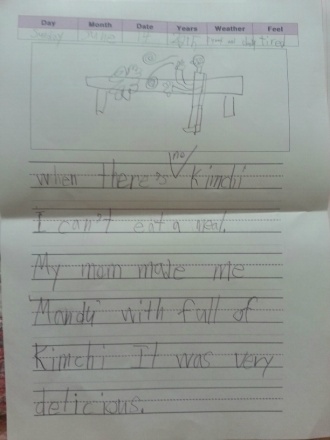 Day Month Date Years Weather Feel
Sunday tired
no
when there's Kimchi
I can't eat a meal.
My mom made me
Mandu with full of
Kimchi It was very
delicious.